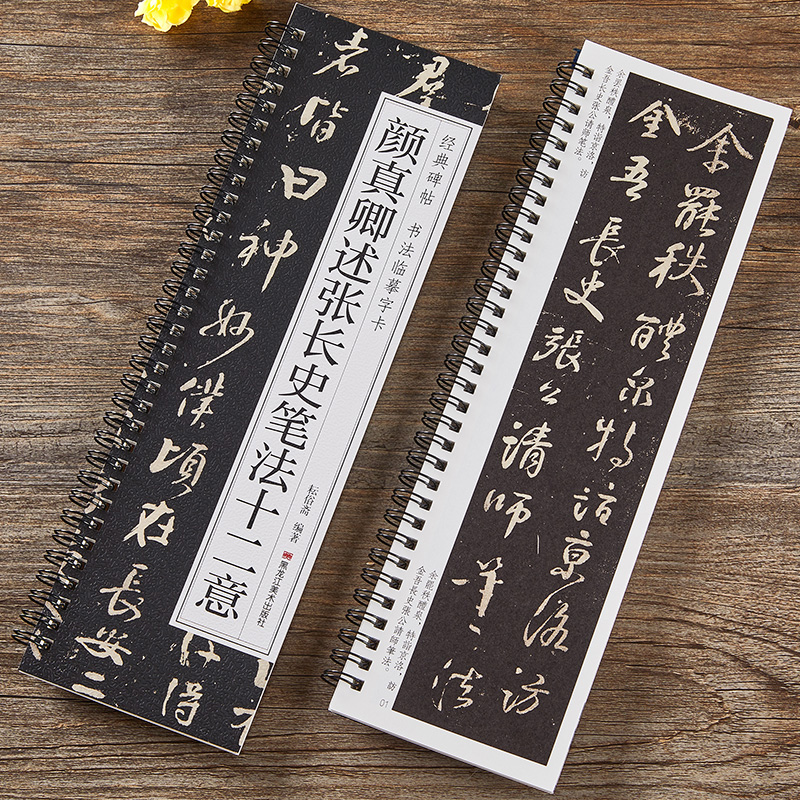 经典碑帖 书法临摹字卡
颜真卿述张长史笔法十二意
耘俗斋 编著
黑龙江美术出版社
群
者皆曰神妙僕頃在長安二
得
余罢秩醴泉，特诣京洛，访
金吾长史张公请师笔法。
余罷秩醴泉特詣京洛訪
金吾長史張公請師筆法
余罷秩醴泉，特詣京洛，訪
金吾長史張公請師筆法。
01